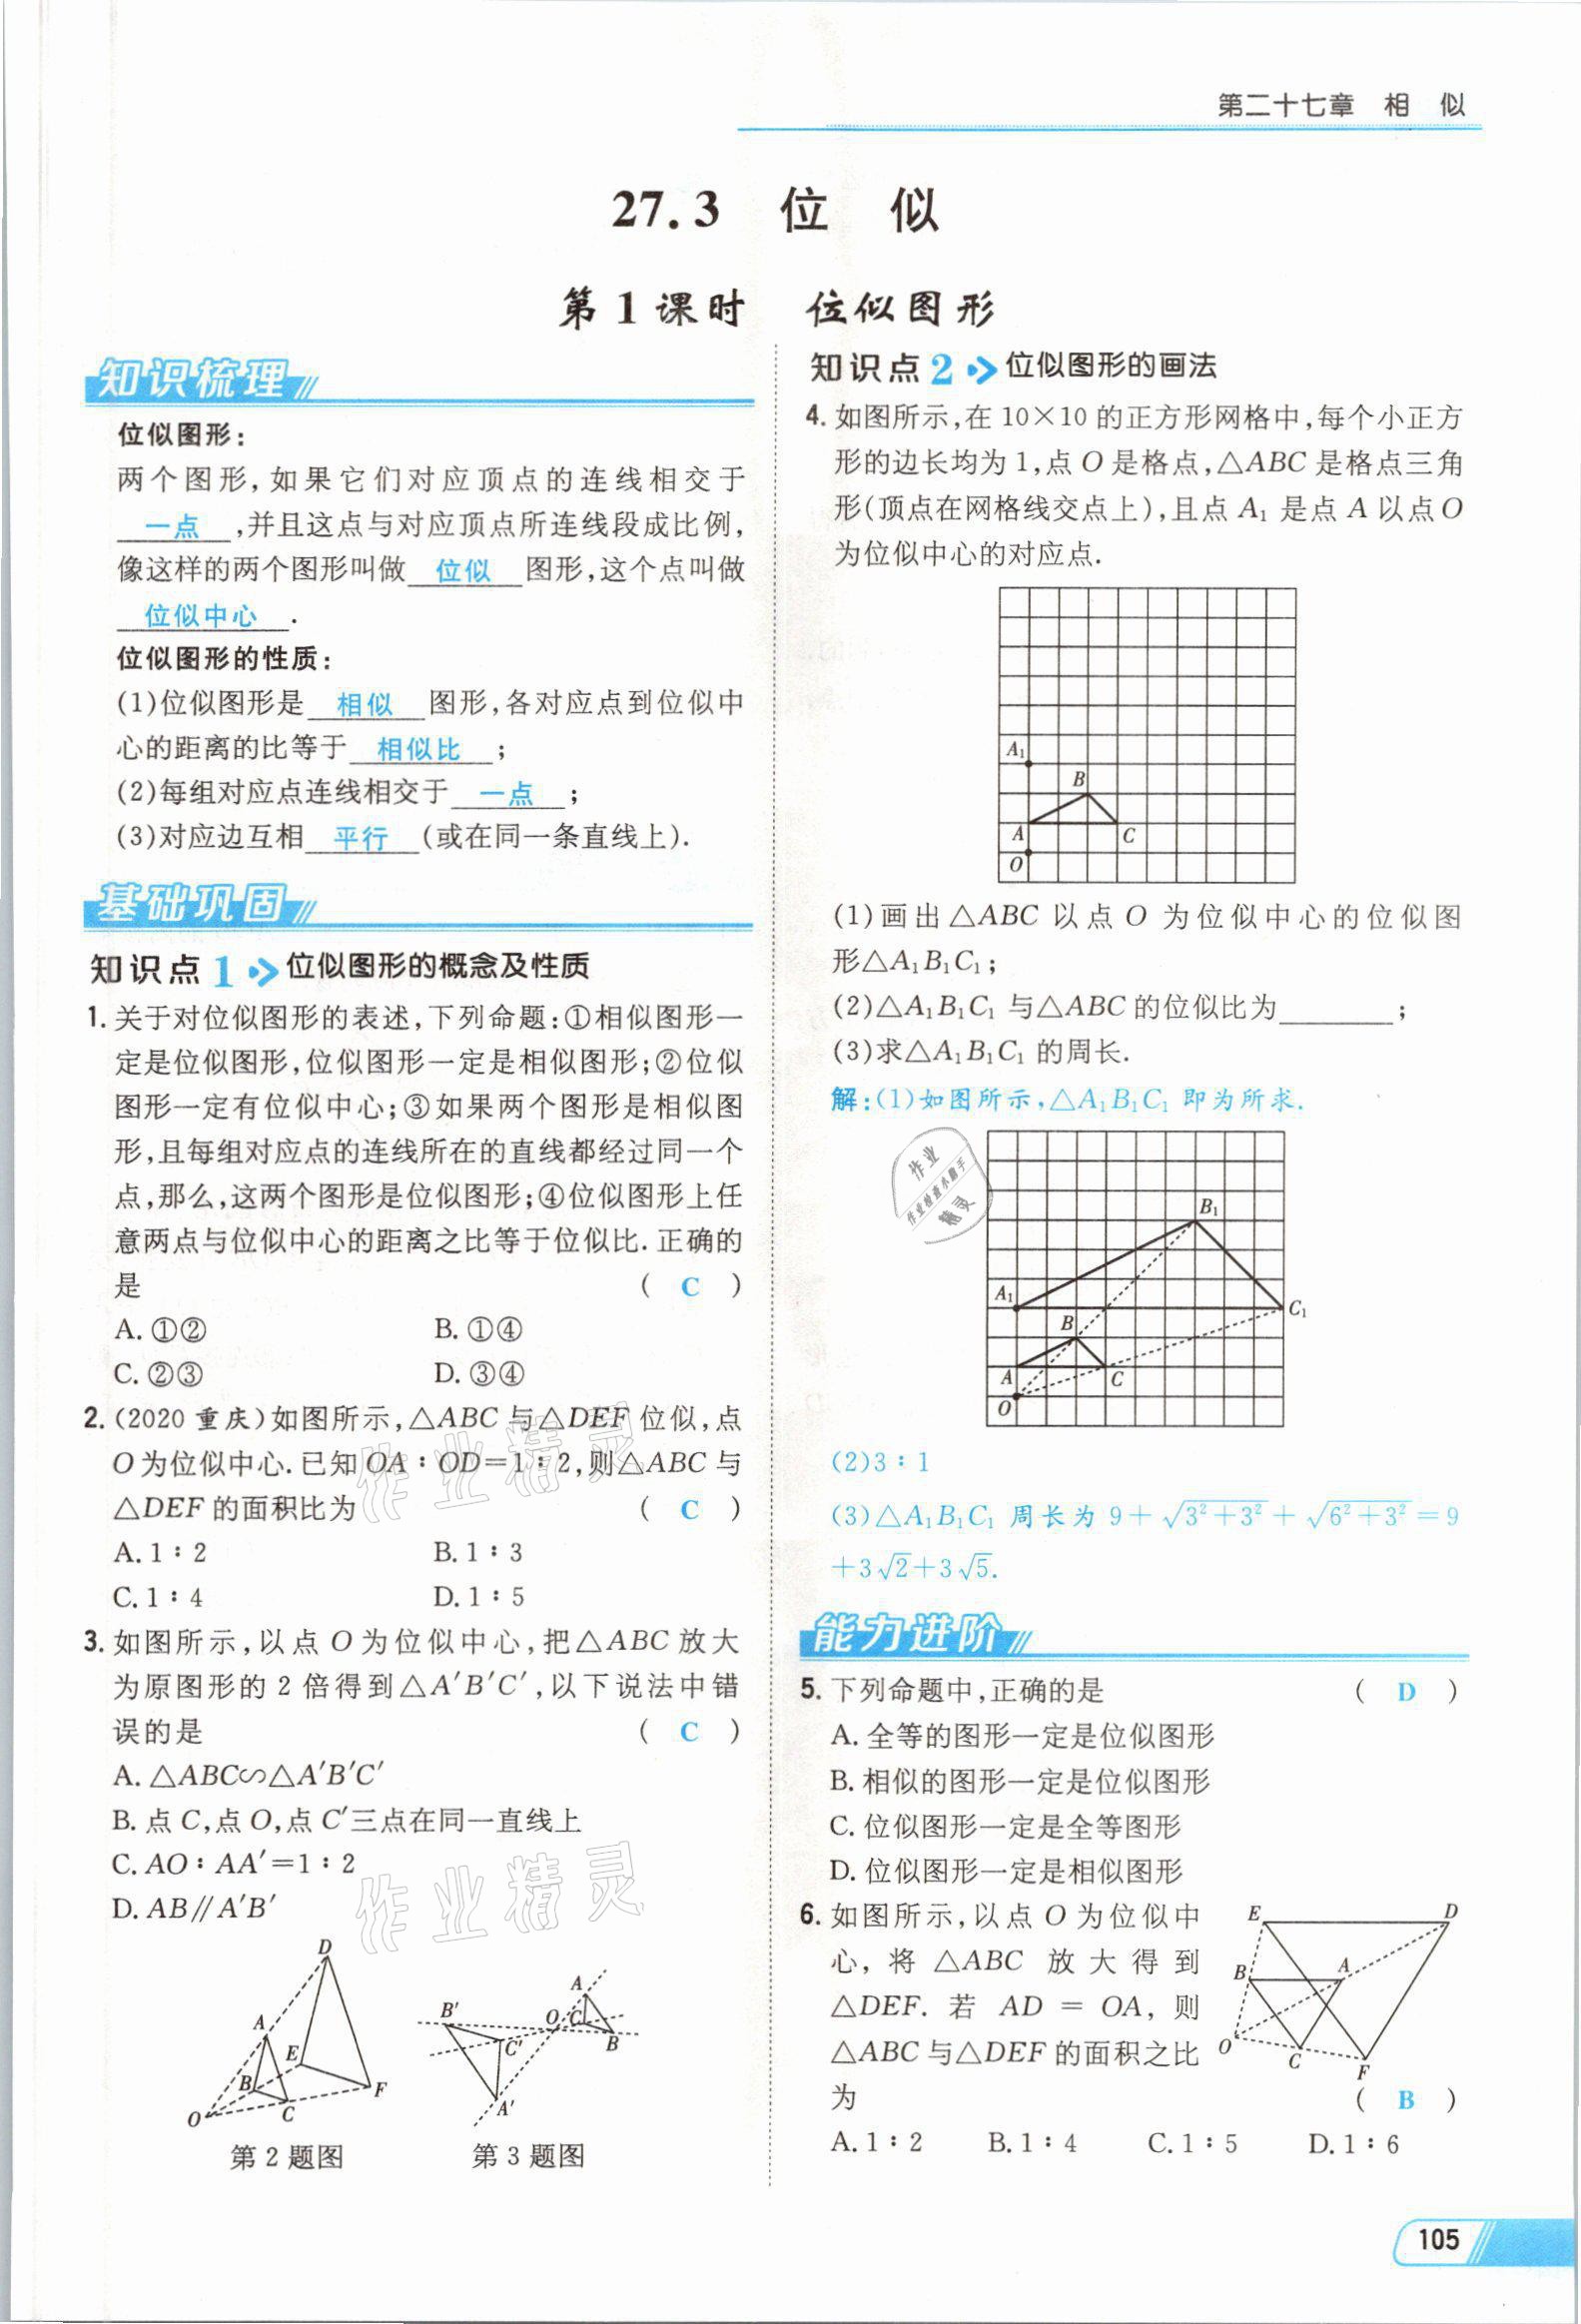 第二十七章 相 似
27.3 位 似
第1课时 位似图形
知识梳理
位似图形:
两个图形,如果它们对应顶点的连线相交于
一点,并且这点与对应顶点所连线段成比例,
像这样的两个图形叫做 位似 图形,这个点叫做
位似中心.
位似图形的性质:
(1)位似图形是 相似 图形,各对应点到位似中
心的距离的比等于 相似比 ;
(2)每组对应点连线相交于 一点 ;
(3)对应边互相 平行 (或在同一条直线上).
基础巩固
知识点1 位似图形的概念及性质
1.关于对位似图形的表述,下列命题:①相似图形一
定是位似图形,位似图形一定是相似图形;②位似
图形一定有位似中心;③如果两个图形是相似图
形,且每组对应点的连线所在的直线都经过同一个
点,那么,这两个图形是位似图形;④位似图形上任
意两点与位似中心的距离之比等于位似比.正确的
是 ( C )
A.①② B.①④
C.②③ D.③④
2.(2020重庆)如图所示,△ABC与△DEF位似,点
O为位似中心.已知OA∶OD=1∶2,则△ABC与
△DEF的面积比为 ( C )
A.1∶2 B.1∶3
C.1∶4 D.1∶5
3.如图所示,以点O为位似中心,把△ABC放大
为原图形的2倍得到△A′B′C′,以下说法中错
误的是 ( C )
A.△ABC∽△A′B′C′
B.点C,点O,点C′三点在同一直线上
C.AO∶AA′=1∶2
D.AB∥A′B′
D
A
E
B
F
C
O
第2题图
A
B′
O
C
C′
B
A′
第3题图
知识点2 位似图形的画法
4.如图所示,在10×10的正方形网格中,每个小正方
形的边长均为1,点O是格点,△ABC是格点三角
形(顶点在网格线交点上),且点A₁是点A以点O
为位似中心的对应点.
A₁
B
A
C
O
(1)画出△ABC以点O为位似中心的位似图
形△A₁B₁C₁;
(2)△A₁B₁C₁与△ABC的位似比为________;
(3)求△A₁B₁C₁的周长.
解:(1)如图所示,△A₁B₁C₁即为所求.
B₁
A₁
C₁
B
A
C
O
(2)3∶1
(3)△A₁B₁C₁周长为9+√(3²+3²)+√(6²+3²)=9
+3√2+3√5.
能力进阶
5.下列命题中,正确的是 ( D )
A.全等的图形一定是位似图形
B.相似的图形一定是位似图形
C.位似图形一定是全等图形
D.位似图形一定是相似图形
6.如图所示,以点O为位似中
心,将△ABC放大得到
△DEF.若AD=OA,则
△ABC与△DEF的面积之比
为 ( B )
A.1∶2 B.1∶4 C.1∶5 D.1∶6
E
D
B
A
O
C
F
作业
作业检查小助手
精灵
作业精灵
作业精灵
105